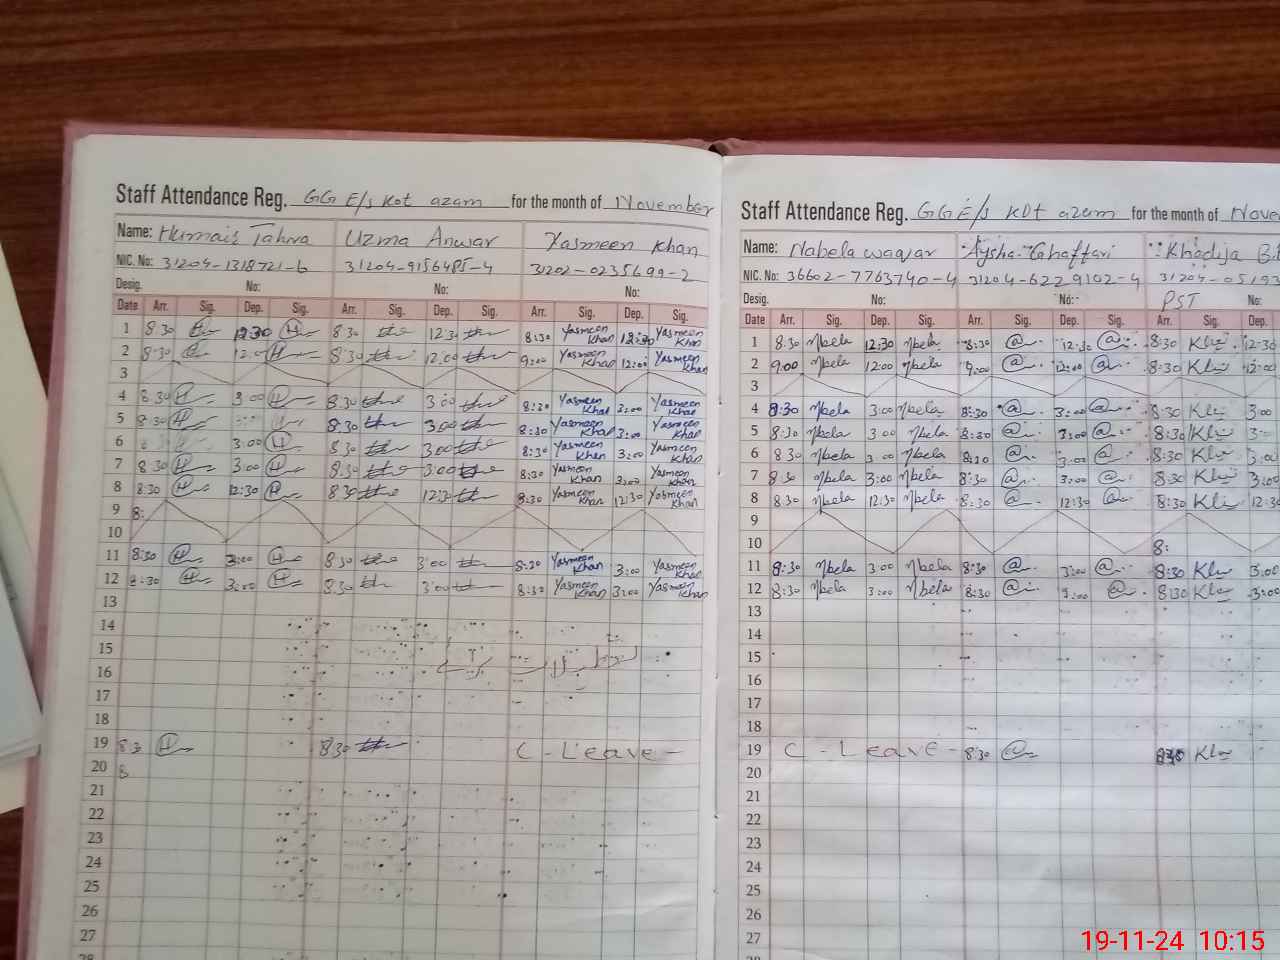 Staff Attendance Reg. GG E/s Kot azam for the month of November
Name: Humais Tahira Uzma Anwar Yasmeen Khan
NIC. No: 31204-1318721-6 31204-9156485-4 31202-0235699-2
Desig. No: No: No:
Date Arr. Sig. Dep. Sig. Arr. Sig. Dep. Sig. Arr. Sig. Dep. Sig.
1 8:30 12:30 8:30 12:30 8:30 Yasmeen Khan 12:30 Yasmeen Khan
2 8:30 12:00 8:30 12:00 9:00 Yasmeen Khan 12:00 Yasmeen Khan
3
4 8:30 3:00 8:30 3:00 8:30 Yasmeen Khan 3:00 Yasmeen Khan
5 8:30 8:30 3:00 8:30 Yasmeen Khan 3:00 Yasmeen Khan
6 3:00 8:30 3:00 8:30 Yasmeen Khan 3:00 Yasmeen Khan
7 8:30 3:00 8:30 3:00 8:30 Yasmeen Khan 3:00 Yasmeen Khan
8 8:30 12:30 8:30 12:30 8:30 Yasmeen Khan 12:30 Yasmeen Khan
9 8:
10
11 8:30 3:00 8:30 3:00 8:30 Yasmeen Khan 3:00 Yasmeen Khan
12 8:30 3:00 8:30 3:00 8:30 Yasmeen Khan 3:00 Yasmeen Khan
13
14
15
16
17
18
19 8:30 8:30 C - Leave -
20 8
21
22
23
24
25
26
27
28
Staff Attendance Reg. GG E/s Kot azam for the month of Nove
Name: Nabela waqar Aysha Ghaffari Khadija Bi
NIC. No: 36602-7763740-4 31204-6229102-4 31204-05193
Desig. No: No: PST No:
Date Arr. Sig. Dep. Sig. Arr. Sig. Dep. Sig. Arr. Sig. Dep.
1 8:30 Nbela 12:30 Nbela 8:30 @ 12:30 @ 8:30 12:30
2 9:00 Nbela 12:00 Nbela 9:00 @ 12:00 @ 8:30 12:00
3
4 8:30 Nbela 3:00 Nbela 8:30 @ 3:00 @ 8:30 3:00
5 8:30 Nbela 3:00 Nbela 8:30 @ 3:00 @ 8:30 3:
6 8:30 Nbela 3:00 Nbela 8:30 @ 3:00 @ 8:30 3:00
7 8:30 Nbela 3:00 Nbela 8:30 @ 3:00 @ 8:30 3:00
8 8:30 Nbela 12:30 Nbela 8:30 @ 12:30 @ 8:30 12:30
9
10 8:
11 8:30 Nbela 3:00 Nbela 8:30 @ 3:00 @ 8:30 3:00
12 8:30 Nbela 3:00 Nbela 8:30 @ 3:00 @ 8:30 3:00
13
14
15
16
17
18
19 C - Leave - 8:30 @ 8:30
20
21
22
23
24
25
26
27
28
19-11-24 10:15